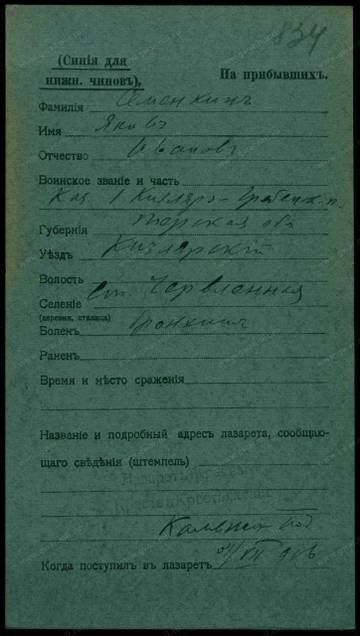 834
(Синія для
нижн. чиновъ).
На прибывшихъ.
Фамилія Семенкинъ
Имя Яковъ
Отчество Ивановъ
Воинское званіе и часть
Каз. 1 Кизляро-Гребенск. п.
Губернія Терская обл
Уѣздъ Кизлярскій
Волость
Селеніе ст. Червленная
(деревня, станица)
Боленъ бронхит
Раненъ
Время и мѣсто сраженія
Названіе и подробный адресъ лазарета, сообщаю-
щаго свѣдѣнія (штемпель)
Когда поступилъ въ лазаретъ